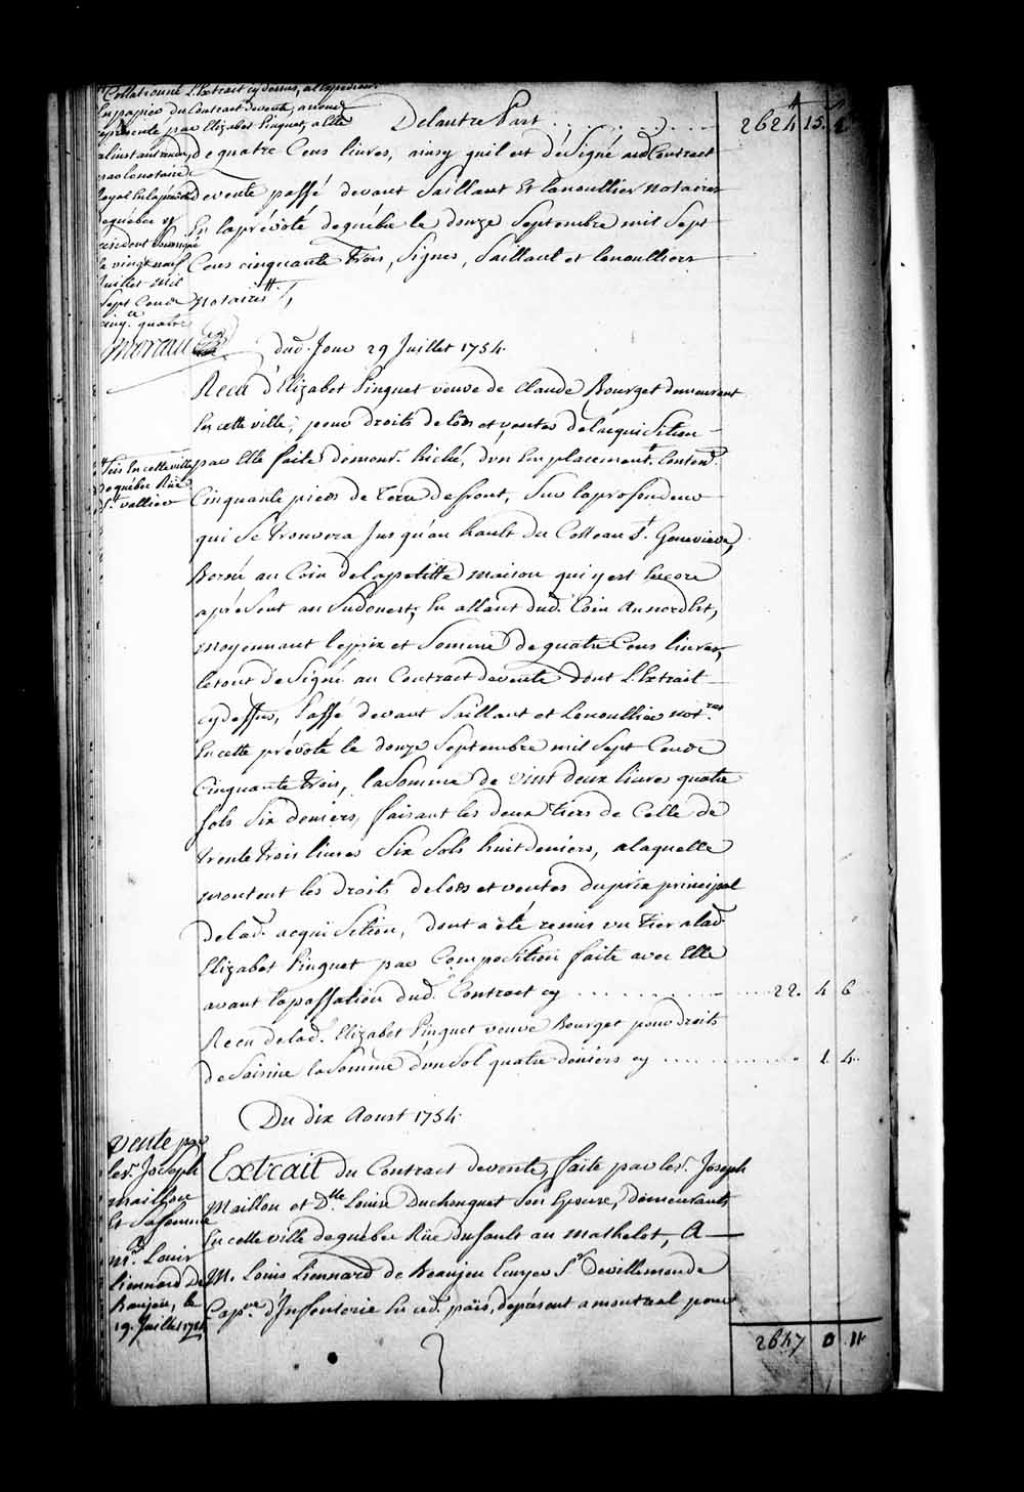 Collationné L'Extrait cy dessus, a l'expedition
En papier du Contract de vente, a nous
représenté par Elizabet Pinguet, a Elle
a l'instant rendu
par le notaire
Royal En la prévôté
de québec y
résident soussigné
le vingt neuf
Juillet mil
Sept Cens
cinq.te quatre
Moreau
De l'autre Part . . . . . . . . . 2624 15. 1
de quatre Cens livres, ainsy quil est désigné aud Contract
de vente passé devant Saillant Et Lanoullier notaires
En la prévôté de québec le donze Septembre mil Sept
Cens cinquante Trois, Signés, Saillant et Lanoulliers
notaires
Dud. Jour 29 Juillet 1754.
Receu d'Elizabet Pinguet veuve de Claude Bourget demeurant
En cette ville, pour droits de lods et ventes de l'acquisition
par Elle faite de mont. hiché, d'un Emplacement. Conten.t
sis En cette ville
de québec Rüe
S.t vallier
Cinquante pieds de Terre de front, Sur la profondeur
qui Se trouvera Jusqu'au hault du Cotteau S.t Genevieve,
Borné au Coin de la petitte maison qui y est Encore
aprésent au Sudouest, En allant dud. Coin au nord Est,
moyennant le prix et Somme de quatre Cens livres,
le tout désigné au Contract de vente dont L'Extrait
cy dessus, Passé devant Saillant et Lanoullier not.res
En cette prévôté le donze Septembre mil Sept Cens
Cinquante trois, la Somme de vint deux livres quatre
sols Six deniers, faisant les deux tiers de Celle de
trente trois livres Six Sols huit deniers, a laquelle
montent les droits de lods et ventes du prix principal
de lad. acquisition, dont a été remis un tier a lad.
Elizabet Pinguet par Composition faite avec Elle
avant la passation dud. Contract cy . . . . . . . . . . 22. 4 6
Receu de lad. Elizabet Pinguet veuve Bourget pour droits
de Saisine la Somme d'un Sol quatre deniers cy . . . . . . . . . 1. 4.
Du dix Aoust 1754
vente par
le s.r Joseph
maillou
Et Sa femme
a
m.r Louis
Liennard De
Baujeu, le
19. Juillet 1754
Extrait du Contract de vente, faite par le s.r Joseph
Maillou et D.lle Louise Duchouquet Son Epouse, demeurants
En cette ville de québec Rüe du sault au mathelot, A
M. Louis Liennard de Beaujeu Ecuyer S.r De villemonde
Cap.ne d'Infanterie En ced. païs, de présent a montreal pour
2647 0 11